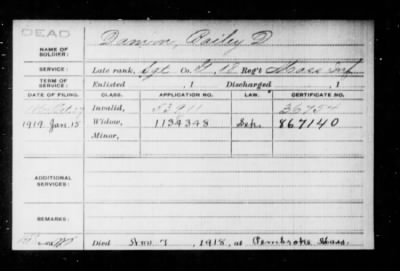 DEAD
NAME OF SOLDIER: Damon, Bailey D
SERVICE: Late rank, Sgt Co. Reg't Mass Inf
TERM OF SERVICE: Enlisted , 1 Discharged , 1
DATE OF FILING. CLASS. APPLICATION NO. LAW. CERTIFICATE NO.
Invalid, 53911 36754
1919 Jan. 15 Widow, 1134348 867140
Minor,
ADDITIONAL SERVICES:
REMARKS:
Died 7, 1918, at Pembroke Mass.